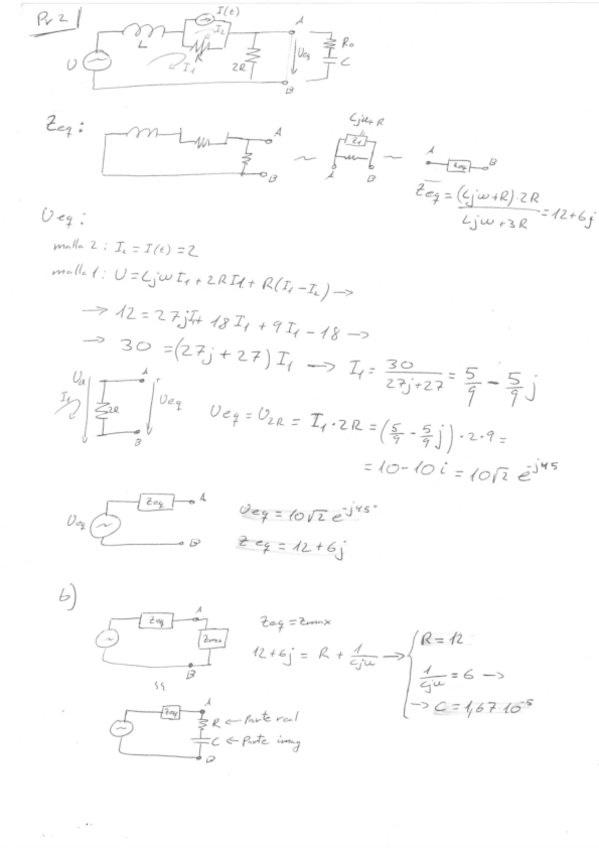 Pr 2
I(t)
A
L
I₂
R
I₁
2R
Ueq
R₀
C
U
B
Zeq:
A
B
~
Ljω+R
Z₁
A B
~
A Zeq B
Zeq = (Ljω+R)·2R / Ljω+3R = 12+6j
Ueq:
malla 2: I₂ = I(t) = 2
malla 1: U = LjωI₁ + 2RI₁ + R(I₁-I₂) →
→ 12 = 27jI₁+ 18I₁ + 9I₁ - 18 →
→ 30 = (27j+27) I₁ → I₁ = 30 / 27j+27 = 5/9 - 5/9 j
A
I₁
2R
Ueq
B
Ueq = U₂R = I₁·2R = (5/9 - 5/9 j)·2·9 =
= 10-10i = 10√2 e^-j45
Zeq A
Ueq ~
B
Ueq = 10√2 e^-j45°
Zeq = 12+6j
b)
Zeq A
~
Zmax
B
Zeq = Zmax
12+6j = R + 1/Cjω →
R = 12
1/Cjω = 6 →
→ C = 1,67·10^-5
Zeq A
R ← Parte real
C ← Parte imag
B